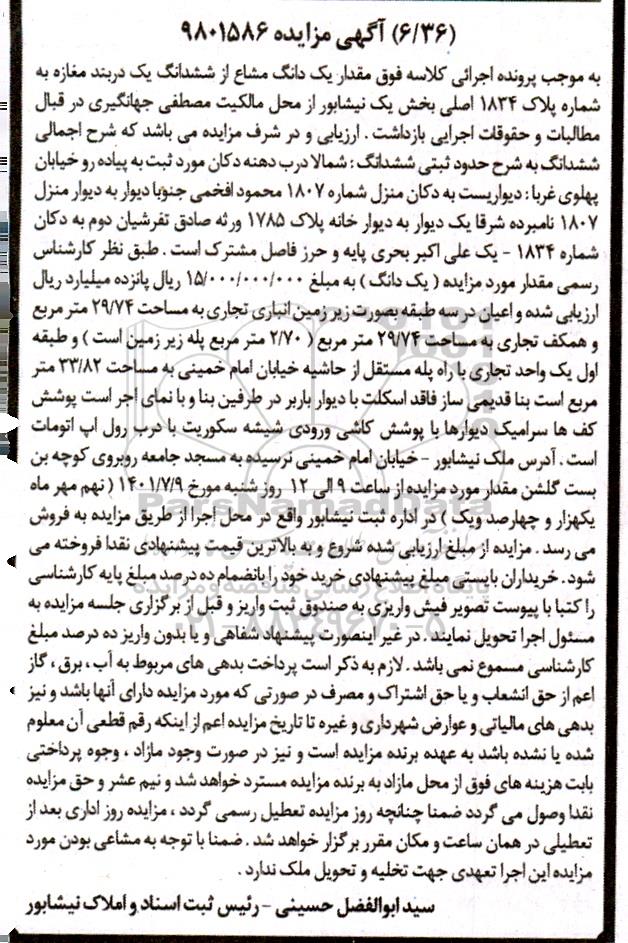 (۶/۳۶) آگهی مزایده ۹۸۰۱۵۸۶
به موجب پرونده اجرائی کلاسه فوق مقدار یک دانگ مشاع از ششدانگ یک دربند مغازه به
شماره پلاک ۱۸۳۴ اصلی بخش یک نیشابور از محل مالکیت مصطفی جهانگیری در قبال
مطالبات و حقوقات اجرایی بازداشت . ارزیابی و در شرف مزایده می باشد که شرح اجمالی
ششدانگ به شرح حدود ثبتی ششدانگ : شمالا درب دهنه دکان مورد ثبت به پیاده رو خیابان
پهلوی غربا : دیواریست به دکان منزل شماره ۱۸۰۷ محمود افخمی جنوبا دیوار به دیوار منزل
۱۸۰۷ نامبرده شرقا یک دیوار به دیوار خانه پلاک ۱۷۸۵ ورثه صادق تفرشیان دوم به دکان
شماره ۱۸۳۴ - یک علی اکبر بحری پایه و حرز فاصل مشترک است . طبق نظر کارشناس
رسمی مقدار مورد مزایده ( یک دانگ ) به مبلغ ۱۵/۰۰۰/۰۰۰/۰۰۰ ریال پانزده میلیارد ریال
ارزیابی شده و اعیان در سه طبقه بصورت زیر زمین انباری تجاری به مساحت ۲۹/۷۴ متر مربع
و همکف تجاری به مساحت ۲۹/۷۴ متر مربع ( ۲/۷۰ متر مربع پله زیر زمین است ) و طبقه
اول یک واحد تجاری با راه پله مستقل از حاشیه خیابان امام خمینی به مساحت ۳۳/۸۲ متر
مربع است بنا قدیمی ساز فاقد اسکلت با دیوار باربر در طرفین بنا و با نمای اجر است پوشش
کف ها سرامیک دیوارها با پوشش کاشی ورودی شیشه سکوریت با درب رول اپ اتومات
است . آدرس ملک نیشابور - خیابان امام خمینی نرسیده به مسجد جامعه روبروی کوچه بن
بست گلشن مقدار مورد مزایده از ساعت ۹ الی ۱۲ روز شنبه مورخ ۱۴۰۱/۷/۹ ( نهم مهر ماه
یکهزار و چهارصد ویک ) در اداره ثبت نیشابور واقع در محل اجرا از طریق مزایده به فروش
می رسد . مزایده از مبلغ ارزیابی شده شروع و به بالاترین قیمت پیشنهادی نقدا فروخته می
شود . خریداران بایستی مبلغ پیشنهادی خرید خود را بانضمام ده درصد مبلغ پایه کارشناسی
را کتبا با پیوست تصویر فیش واریزی به صندوق ثبت واریز و قبل از برگزاری جلسه مزایده به
مسئول اجرا تحویل نمایند . در غیر اینصورت پیشنهاد شفاهی و یا بدون واریز ده درصد مبلغ
کارشناسی مسموع نمی باشد . لازم به ذکر است پرداخت بدهی های مربوط به آب ، برق ، گاز
اعم از حق انشعاب و یا حق اشتراک و مصرف در صورتی که مورد مزایده دارای آنها باشد و نیز
بدهی های مالیاتی و عوارض شهرداری و غیره تا تاریخ مزایده اعم از اینکه رقم قطعی آن معلوم
شده یا نشده باشد به عهده برنده مزایده است و نیز در صورت وجود مازاد ، وجوه پرداختی
بابت هزینه های فوق از محل مازاد به برنده مزایده مسترد خواهد شد و نیم عشر و حق مزایده
نقدا وصول می گردد ضمنا چنانچه روز مزایده تعطیل رسمی گردد ، مزایده روز اداری بعد از
تعطیلی در همان ساعت و مکان مقرر برگزار خواهد شد . ضمنا با توجه به مشاعی بودن مورد
مزایده این اجرا تعهدی جهت تخلیه و تحویل ملک ندارد .
سید ابوالفضل حسینی - رئیس ثبت اسناد و املاک نیشابور
ParsNamadData
پایگاه اطلاع رسانی مناقصه و مزایده
۰۲۱-۸۸۳۴۹۶۷۰-۵